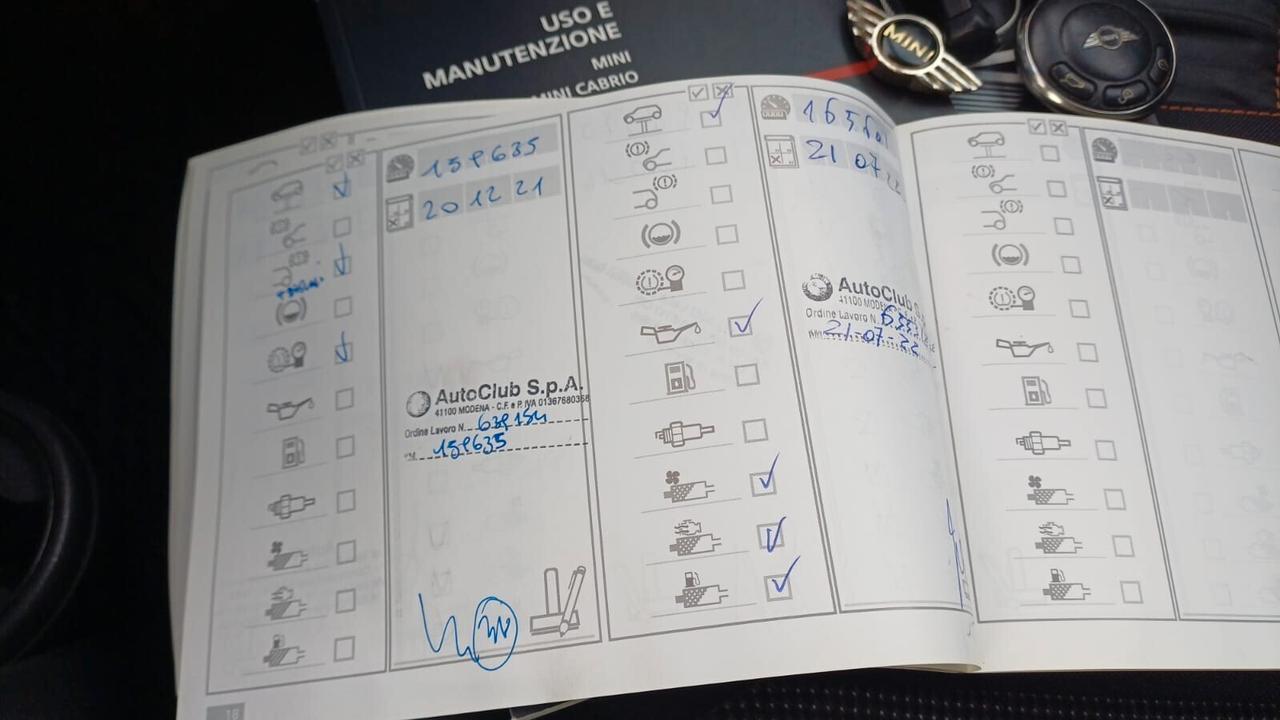 USO E
MANUTENZIONE
MINI
MINI CABRIO
MINI
159635
20 12 21
AutoClub S.p.A.
41100 MODENA - C.F. e P. IVA
Ordine Lavoro N.
159635
21 07 22
AutoClub S.p
41100 MODENA
Ordine Lavoro N.
21-07-22
18